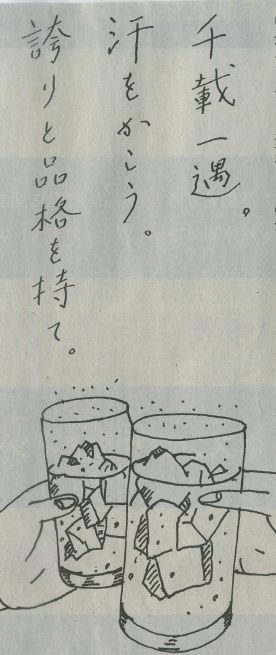 千載一遇。
汗をかこう。
誇りと品格を持て。